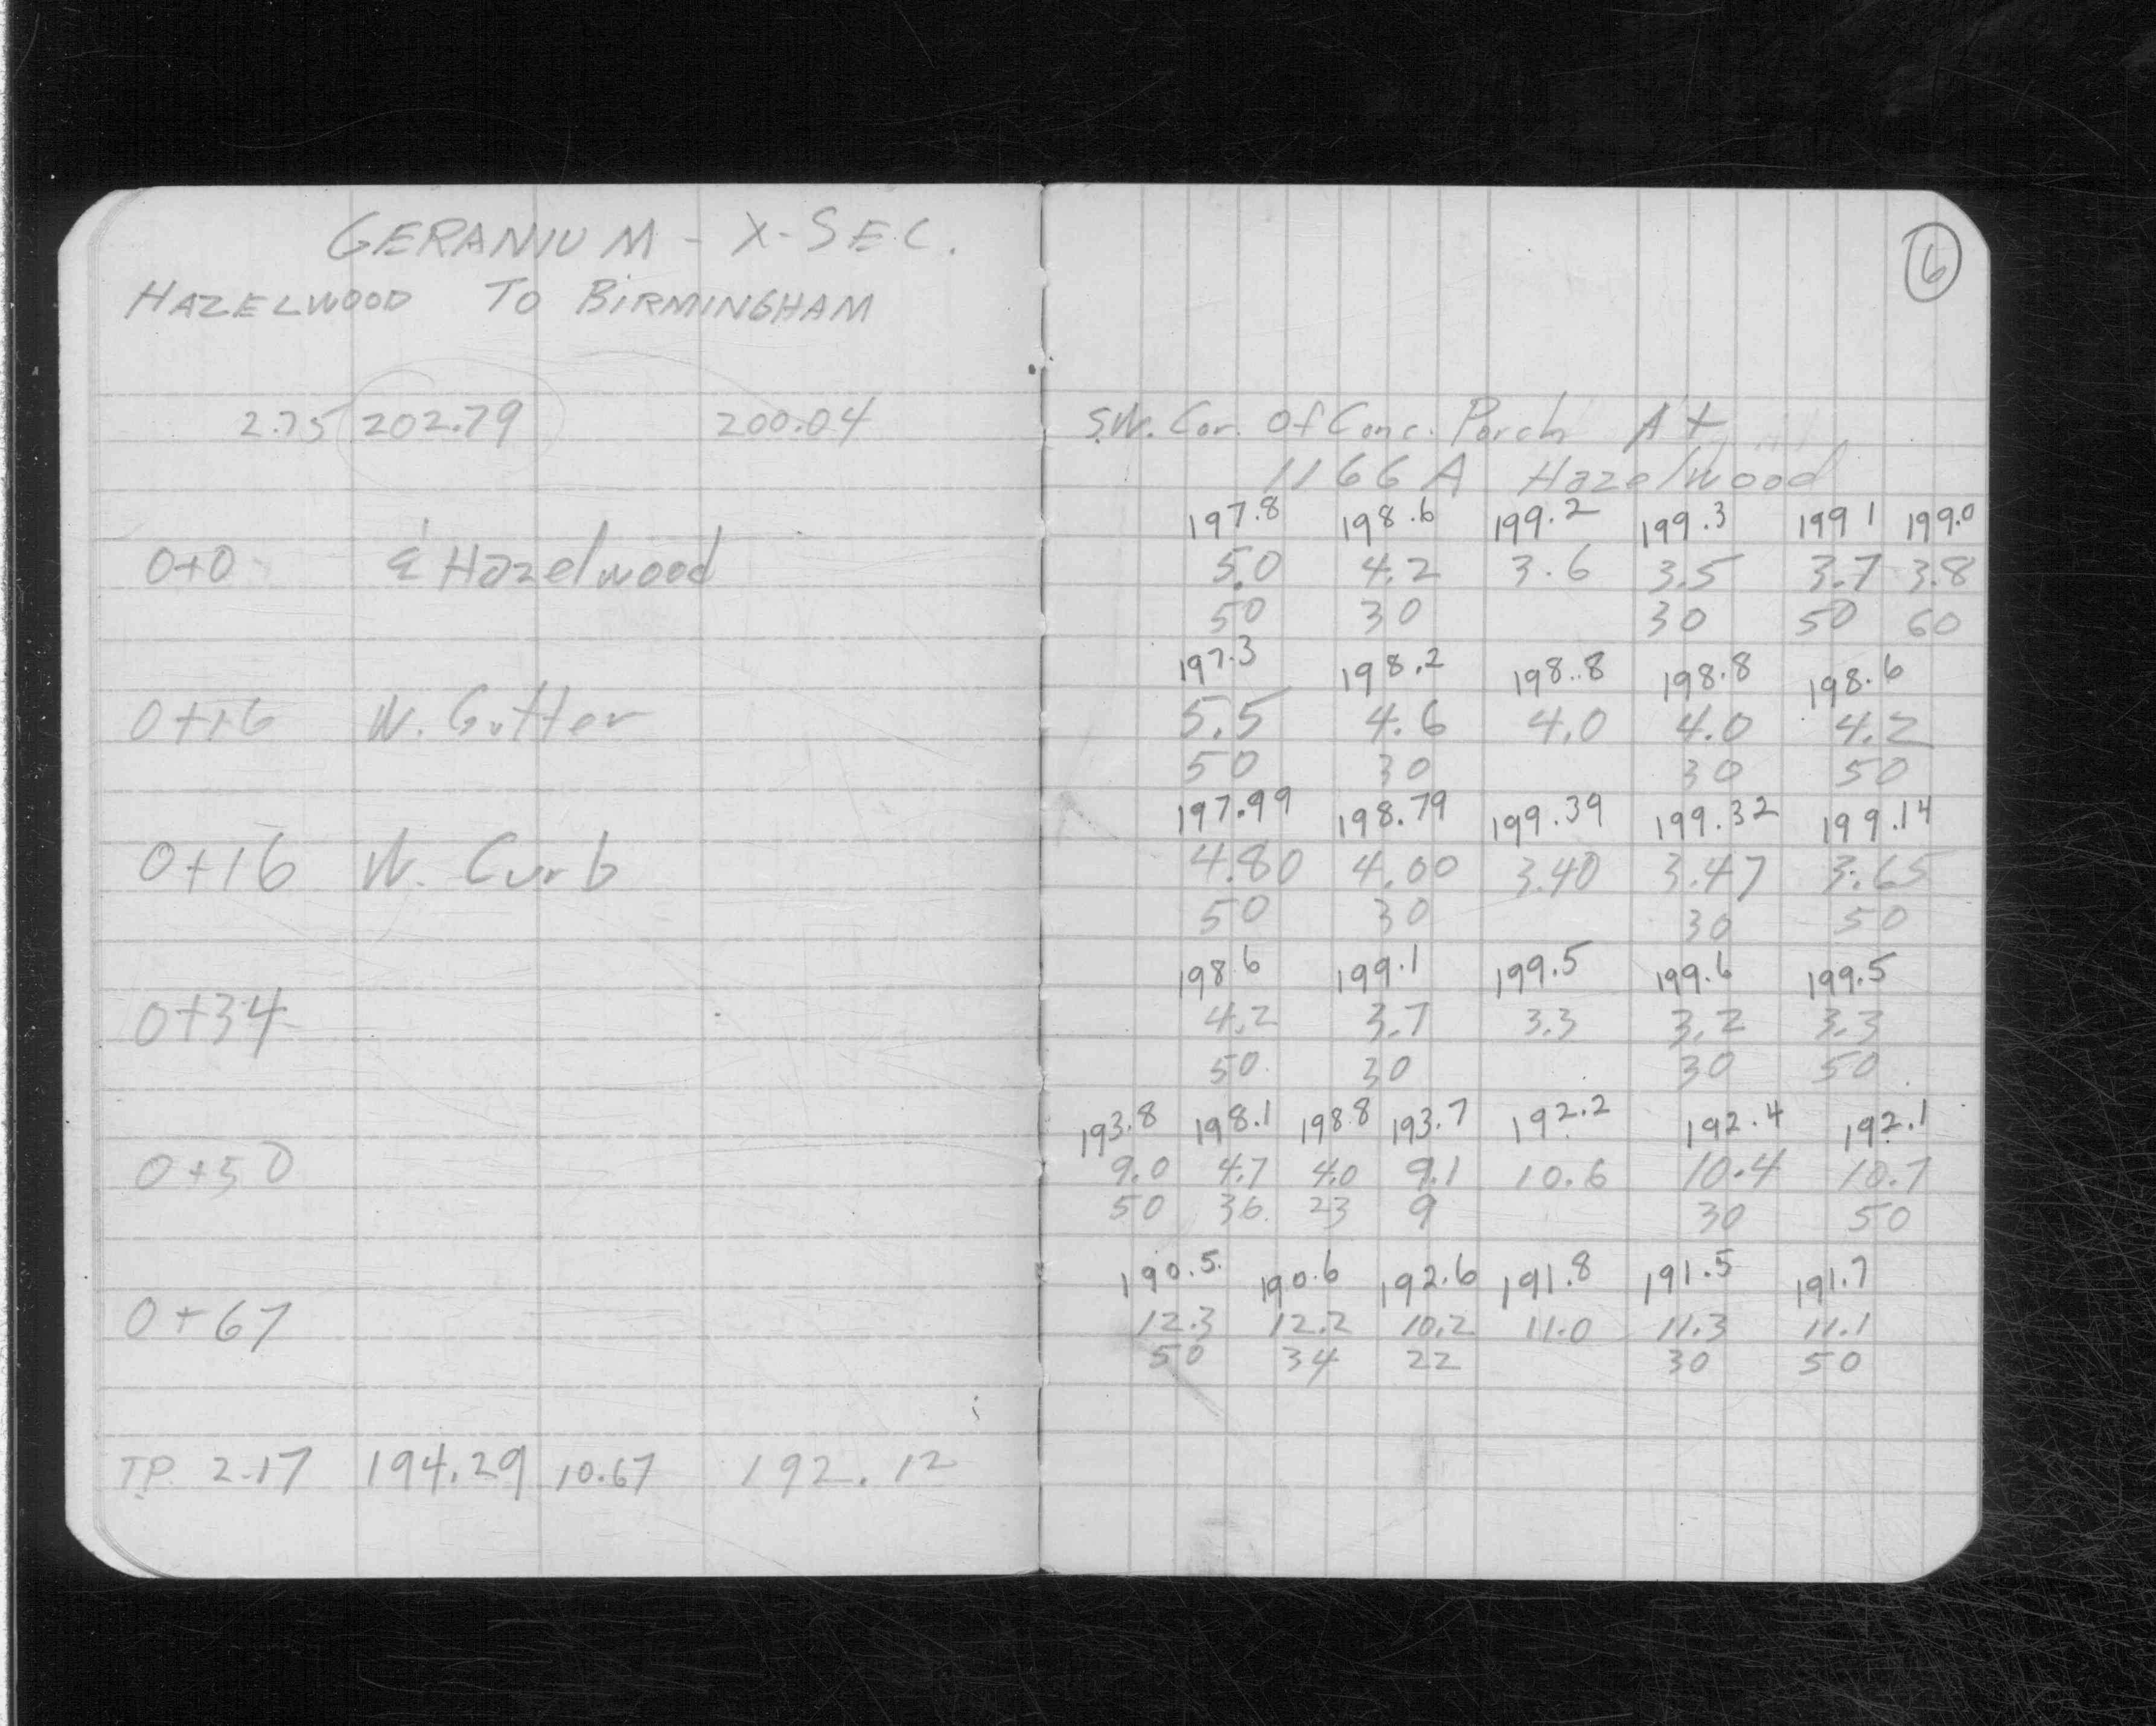 GERANIUM - X-SEC.
HAZELWOOD TO BIRMINGHAM
2.75 202.79 200.04
0+0 ℄ Hazelwood
0+16 W. Gutter
0+16 W. Curb
0+34
0+50
0+67
T.P. 2.17 194.29 10.67 192.12
6
S.W. Cor. Of Conc. Porch At
1166 A Hazelwood
197.8 198.6 199.2 199.3 199 1 199.0
5.0 4.2 3.6 3.5 3.7 3.8
50 30 30 50 60
197.3 198.2 198.8 198.8 198.6
5.5 4.6 4.0 4.0 4.2
50 30 30 50
197.99 198.79 199.39 199.32 199.14
4.80 4.00 3.40 3.47 3.65
50 30 30 50
198 6 199.1 199.5 199.6 199.5
4.2 3.7 3.3 3.2 3.3
50 30 30 50
193.8 198.1 198 8 193.7 192.2 192.4 192.1
9.0 4.7 4.0 9.1 10.6 10.4 10.7
50 36 23 9 30 50
190.5 190.6 192.6 191.8 191.5 191.7
12.3 12.2 10.2 11.0 11.3 11.1
50 34 22 30 50